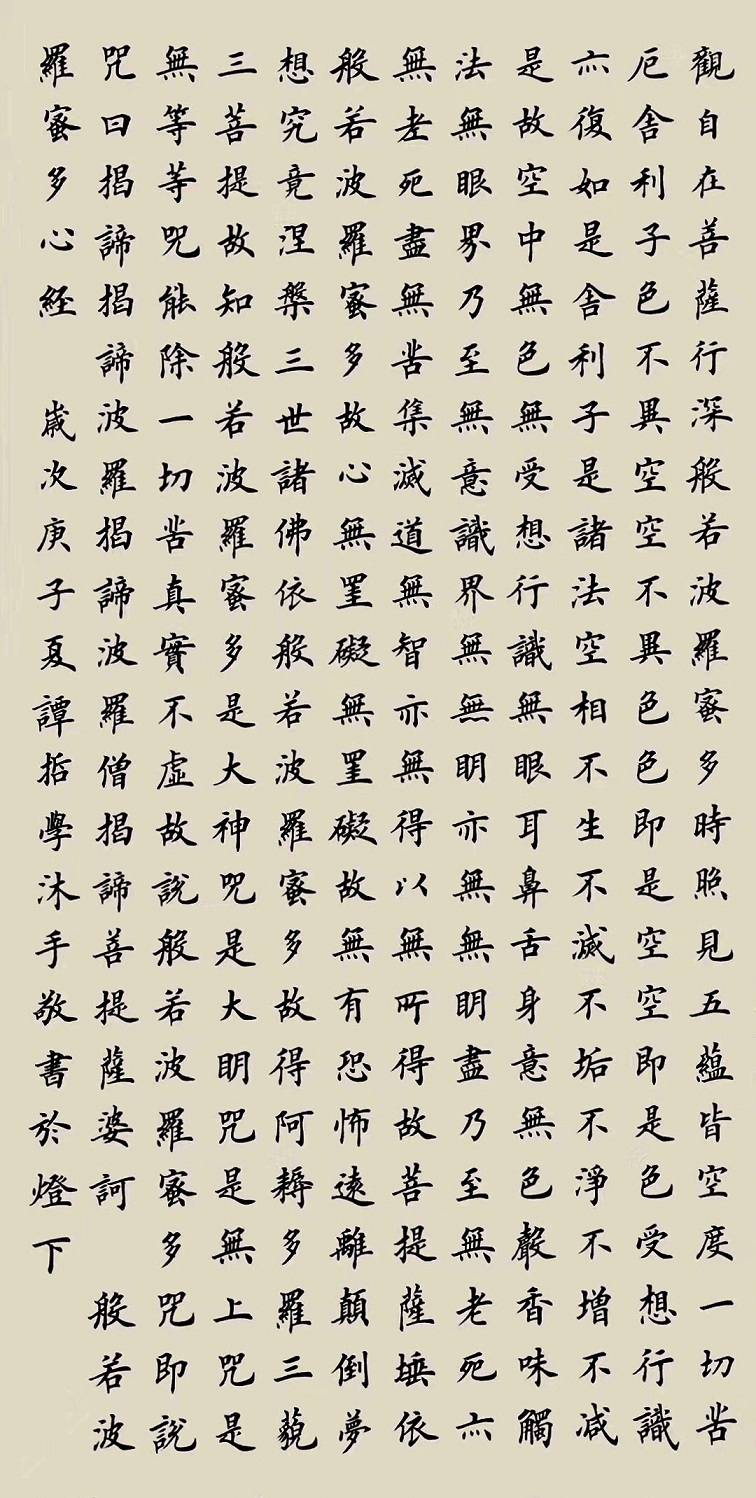 觀自在菩薩行深般若波羅蜜多時照見五蘊皆空度一切苦
厄舍利子色不異空空不異色色即是空空即是色受想行識
亦復如是舍利子是諸法空相不生不滅不垢不淨不增不减
是故空中無色無受想行識無眼耳鼻舌身意無色聲香味觸
法無眼界乃至無意識界無無眀亦無無眀盡乃至無老死亦
無老死盡無苦集滅道無智亦無得以無所得故菩提薩埵依
般若波羅蜜多故心無罣礙無罣礙故無有恐怖遠離顛倒夢
想究竟涅槃三世諸佛依般若波羅蜜多故得阿耨多羅三藐
三菩提故知般若波羅蜜多是大神咒是大眀咒是無上咒是
無等等咒能除一切苦真實不虛故說般若波羅蜜多咒即說
咒曰揭諦揭諦波羅揭諦波羅僧揭諦菩提薩婆訶 般若波
羅蜜多心経 歲次庚子夏譚哲學沐手敬書於燈下